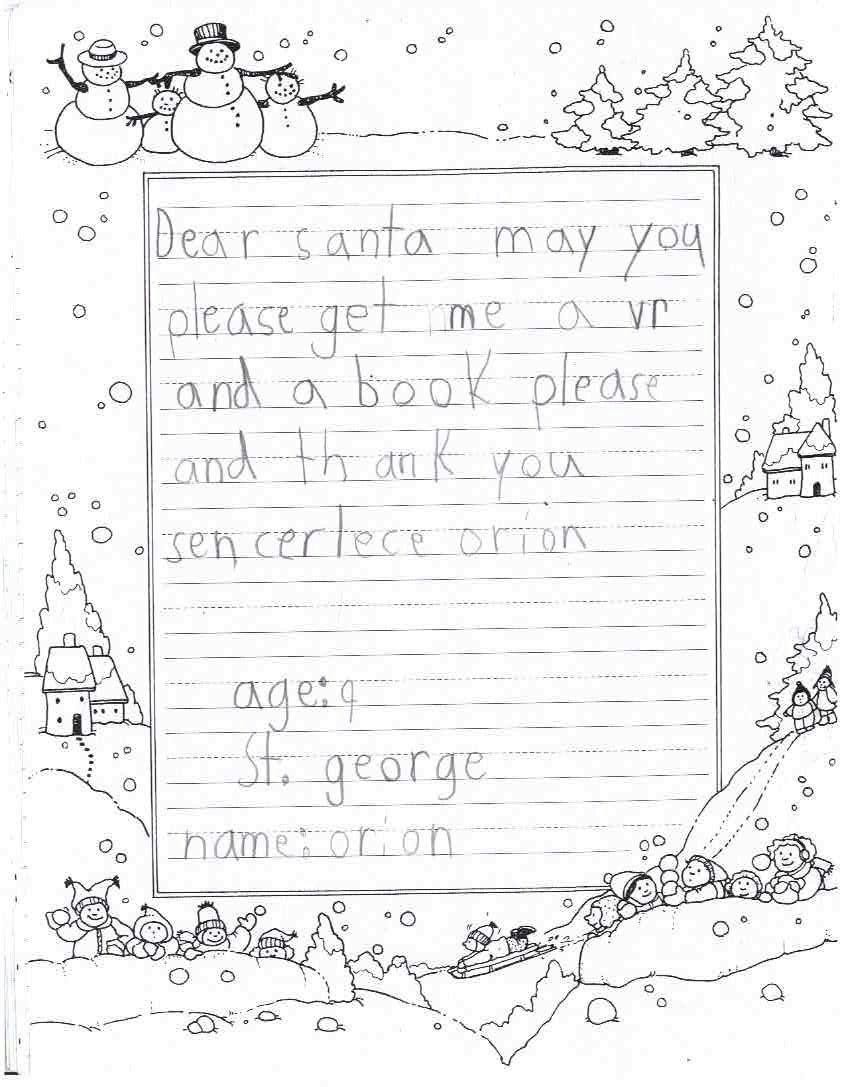 Dear santa may you
please get me a vr
and a book please
and thank you
sencerlece orion
age: 9
St. george
name: orion